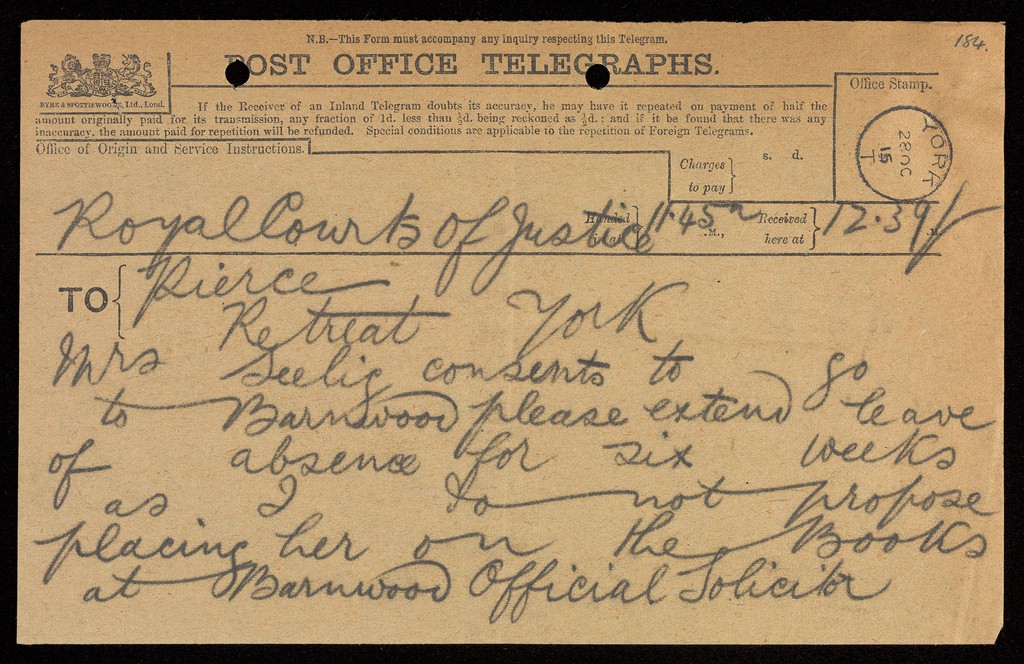 184.
N.B.—This Form must accompany any inquiry respecting this Telegram.
POST OFFICE TELEGRAPHS.
EYRE & SPOTTISWOODE, Ltd., Lond.
If the Receiver of an Inland Telegram doubts its accuracy, he may have it repeated on payment of half the
amount originally paid for its transmission, any fraction of 1d. less than ½d. being reckoned as ½d.; and if it be found that there was any
inaccuracy, the amount paid for repetition will be refunded. Special conditions are applicable to the repetition of Foreign Telegrams.
Office of Origin and Service Instructions.
Charges to pay } s. d.
Office Stamp.
YORK
28 OC
15
T
Royal Courts of Justice
Handed in at } 11.45 .M.,
Received here at } 12.39
TO { Pierce
Retreat York
Mrs Seelig consents to go
to Barnwood please extend leave
of absence for six weeks
as I do not propose
placing her on the Books
at Barnwood Official Solicitor